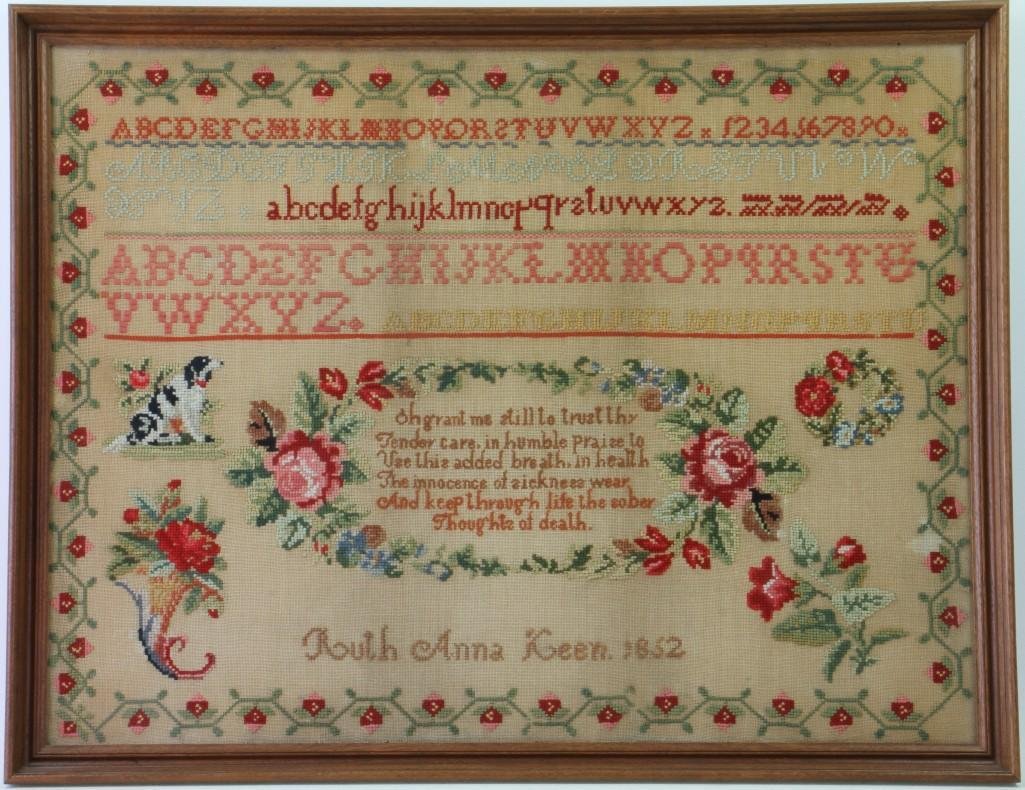 ABCDEFGHIJKLMNOPQRSTUVWXYZ 1234567890
ABCDEFGHIKLMNOPQRSTUVW
XYZ
abcdefghijklmnopqrstuvwxyz.
ABCDEFGHIJKLMNOPQRSTU
VWXYZ. ABCDEFGHIJKLMNOPQRSTU
Oh grant me still to trust thy
Tender care, in humble praise to
Use this added breath, in health
The innocence of sickness wear,
And keep through life the sober
Thoughts of death.
Ruth Anna Keen. 1852